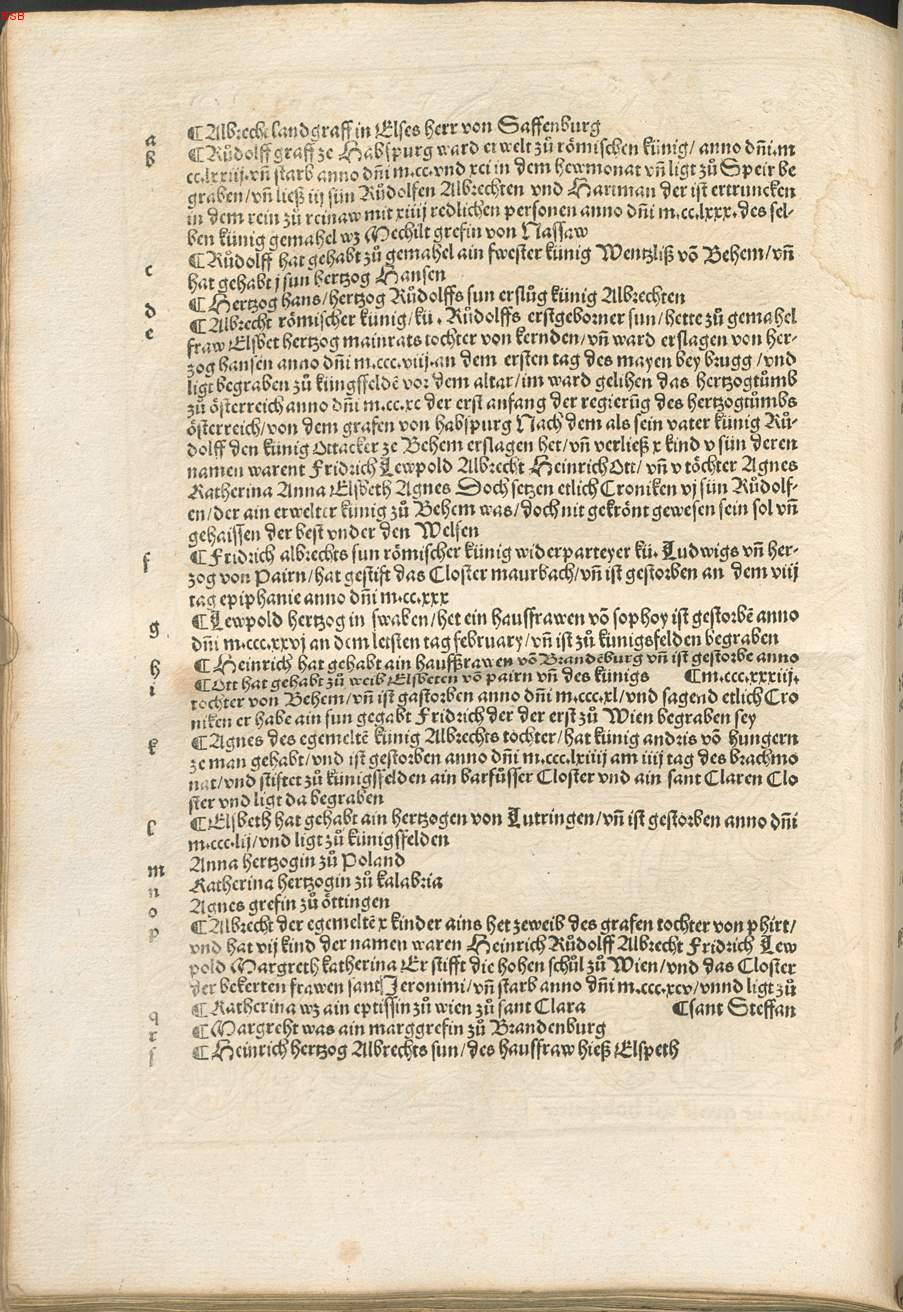 BSB
a ¶ Albrecht landgraff in Elses herr von Saffenburg
b ¶ Růdolff graff ze Habspurg ward erwelt zů römischen künig/ anno dñi.m
cc.lxxiij.vñ starb anno dñi m.cc.vnd xci in dem hewmonat vñ ligt zů Speir be
graben/vñ ließ iij sün Růdolfen Albrechten vnd Hartman der ist ertruncken
in dem rein zů reinaw mit xiiij redlichen personen anno dñi m.cc.lxxx.des sel-
ben künig gemahel wz Mechilt grefin von Nassaw
c ¶ Růdolff hat gehabt zů gemahel ain swester künig Wentzliß võ Behem/vñ
hat gehabt j sun hertzog Hansen
d ¶ Hertzog hans/hertzog Růdolffs sun erslůg künig Albrechten
e ¶ Albrecht römischer künig/kü. Růdolffs erstgeborner sun/hette zů gemahel
fraw Elsbet hertzog mainrats tochter von kernden/vñ ward erslagen von her-
zog hansen anno dñi m.ccc.viij.an dem ersten tag des mayen bey brugg/vnd
ligt begraben zů küngsfeldē vor dem altar/im ward gelihen das hertzogtůmb
zů österreich anno dñi m.cc.xc der erst anfang der regierũg des hertzogtůmbs
österreich/von dem grafen von habspurg Nach dem als sein vater künig Rů-
dolff den künig Ottacker ze Behem erslagen het/vñ verließ x kind v sün deren
namen warent Fridrich Lewpold Albrecht Heinrich Ott/ vñ v töchter Agnes
Katherina Anna Elsbeth Agnes Doch setzen etlich Croniken vj sün Růdolf-
en/der ain erwelter künig zů Behem was/doch nit gekrönt gewesen sein sol vñ
gehaissen der best vnder den Welsen
f ¶ Fridrich albrechts sun römischer künig widerparteyer kü. Ludwigs vñ her-
zog von Pairn/hat gestift das Closter maurbach/vñ ist gestorben an dem viij
tag epiphanie anno dñi m.cc.xxx
g ¶ Lewpold hertzog in swaben/het ein haussfrawen võ sophoy ist gestorbē anno
dñi m.ccc.xxvj an dem letsten tag february/vñ ist zů künigsfelden begraben
h ¶ Heinrich hat gehabt ain haußfrawen võ Brandēburg vñ ist gestorbe anno
i ¶ Ott hat gehabt zů weib Elsbeten võ pairn vñ des künigs ¶ m.ccc.xxxiij.
tochter von Behem/vñ ist gastorben anno dñi m.ccc.xl/vnd sagend etlich Cro
niken er habe ain sun gegabt Fridrich der der erst zů Wien begraben sey
k ¶ Agnes des egemeltē künig Albrechts tochter/hat künig andris võ hungern
ze man gehabt/vnd ist gestorben anno dñi m.ccc.lxiiij am iiij tag des brachmo
nat/vnd stiftet zů künigsfelden ain barfüsser Closter vnd ain sant Claren Clo
ster vnd ligt da begraben
l ¶ Elsbeth hat gehabt ain hertzogen von Lutringen/vñ ist gestorben anno dñi
m.ccc.lij/vnd ligt zů künigsffelden
m Anna hertzogin zů Poland
n Katherina hertzogin zů kalabria
o Agnes grefin zů öttingen
p ¶ Albrecht der egemeltē x kinder ains het zeweib des grafen tochter von phirt/
vnd hat vij kind der namen waren Heinrich Růdolff Albrecht Fridrich Lew
pold Margreth katherina Er stifft die hohen schůl zů Wien/vnd das Closter
der bekerten frawen sant Jeronimi/vñ starb anno dñi m.ccc.xcv/vnnd ligt zů
q ¶ Katherina wz ain eptissin zů wien zů sant Clara ¶ sant Steffan
r ¶ Margreht was ain marggrefin zů Brandenburg
s ¶ Heinrich hertzog Albrechts sun/des haussfraw hieß Elspeth